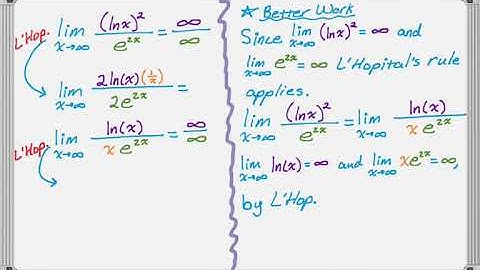 L'Hop. lim x→∞ (ln x)² / e^(2x) = ∞/∞
lim x→∞ 2 ln(x) (1/x) / 2e^(2x) =
L'Hop. lim x→∞ ln(x) / x e^(2x) = ∞/∞
☆ Better Work
Since lim x→∞ (ln x)² = ∞ and
lim x→∞ e^(2x) = ∞ L'Hopital's rule
applies.
lim x→∞ (ln x)² / e^(2x) = lim x→∞ ln(x) / x e^(2x)
lim x→∞ ln(x) = ∞ and lim x→∞ x e^(2x) = ∞,
by L'Hop.